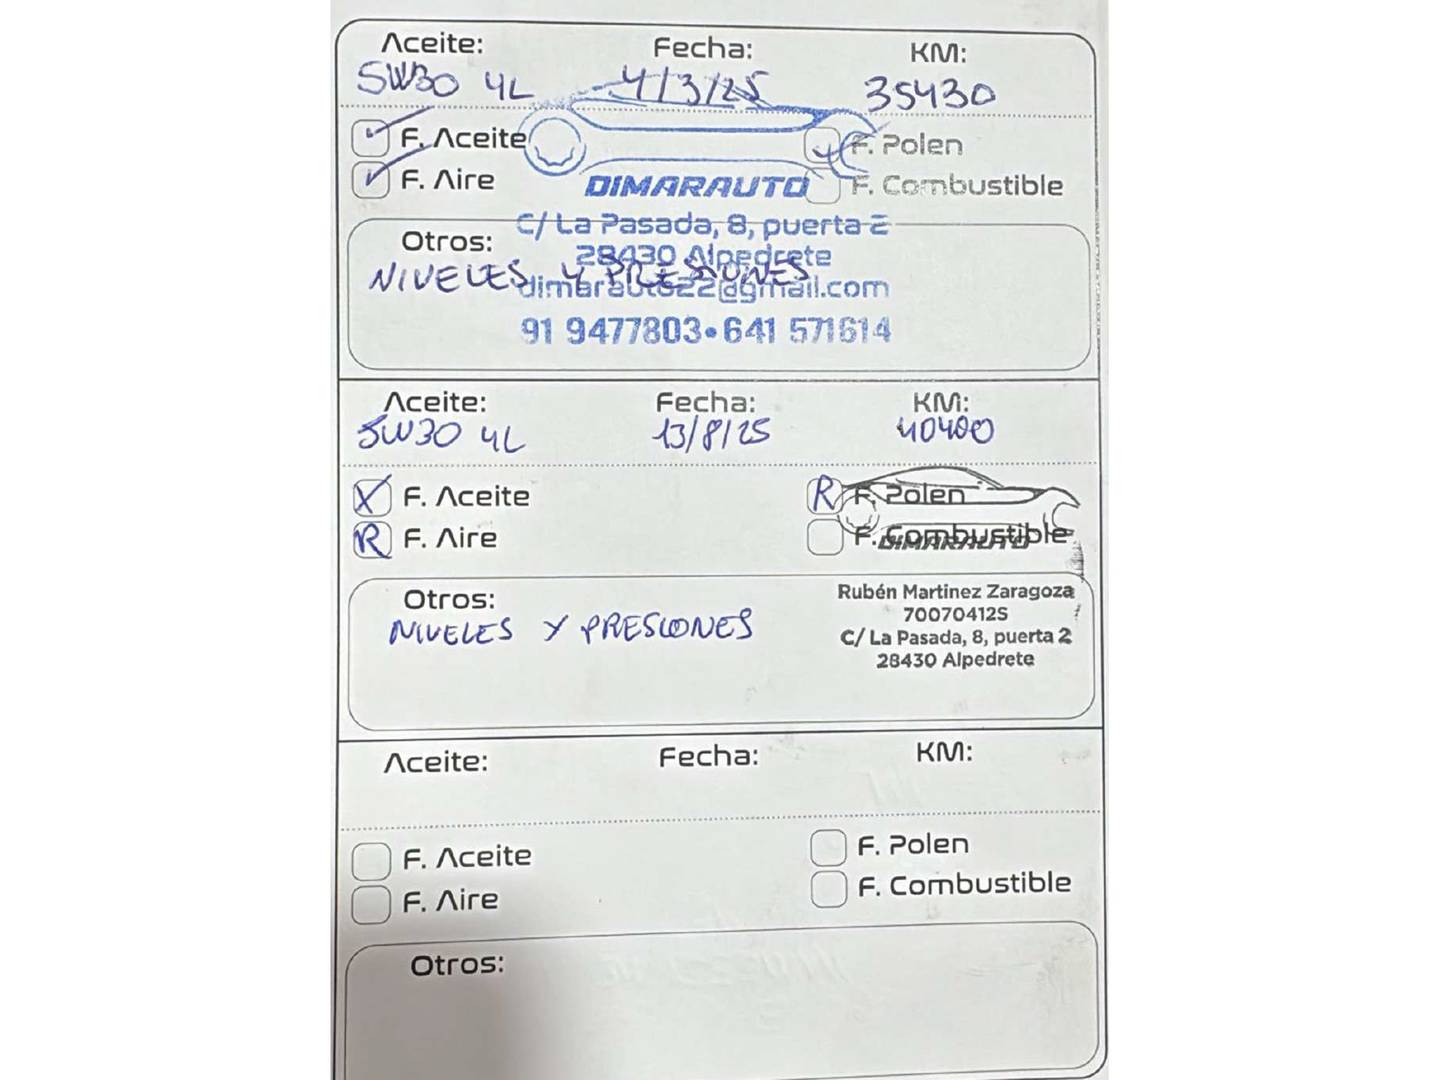 Aceite: Fecha: KM:
5W30 4L 4/3/25 35430
F. Aceite F. Polen
F. Aire F. Combustible
DIMARAUTO
C/ La Pasada, 8, puerta 2
Otros:
28430 Alpedrete
NIVELES Y PRESIONES
dimarauto22@gmail.com
91 9477803•641 571614
Aceite: Fecha: KM:
5W30 4L 13/8/25 40400
X F. Aceite R F. Polen
R F. Aire F. Combustible
DIMARAUTO
Otros:
NIVELES Y PRESIONES
Rubén Martinez Zaragoza
70070412S
C/ La Pasada, 8, puerta 2
28430 Alpedrete
Aceite: Fecha: KM:
F. Aceite F. Polen
F. Aire F. Combustible
Otros: